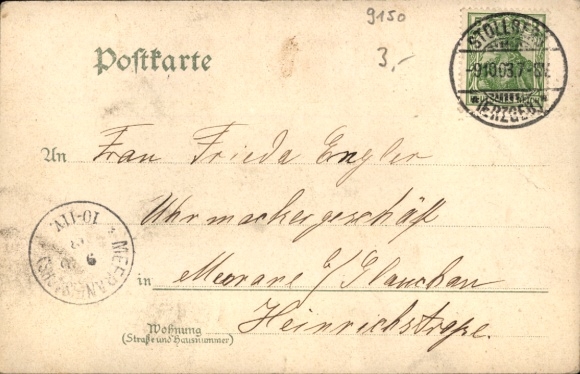 9150
3,-
Postkarte
STOLLBERG
9.10.03.7-8V.
(ERZGEB.)
An Frau Frieda Engler
Uhrmachergeschäft
10-11V.
MEERANE
9
in Meerane b/ Glauchau
Heinrichstraße.
Wohnung
(Straße und Hausnummer)